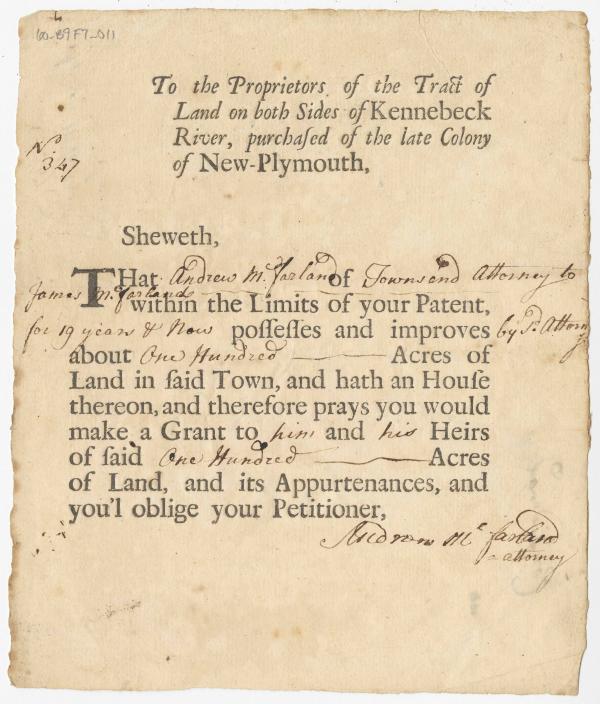 60-89F7-011
To the Proprietors of the Tract of
Land on both Sides of Kennebeck
River, purchaſed of the late Colony
of New-Plymouth,
No.
347
Sheweth,
THat Andrew Mc.farland of Townsend Attorney to
James Mc.farlands
within the Limits of your Patent,
for 19 years & Now poſſeſſes and improves by sd. Attorny
about One Hundred Acres of
Land in ſaid Town, and hath an Houſe
thereon, and therefore prays you would
make a Grant to him and his Heirs
of ſaid One Hundred Acres
of Land, and its Appurtenances, and
you'l oblige your Petitioner,
Andrew Mc farland
attorney